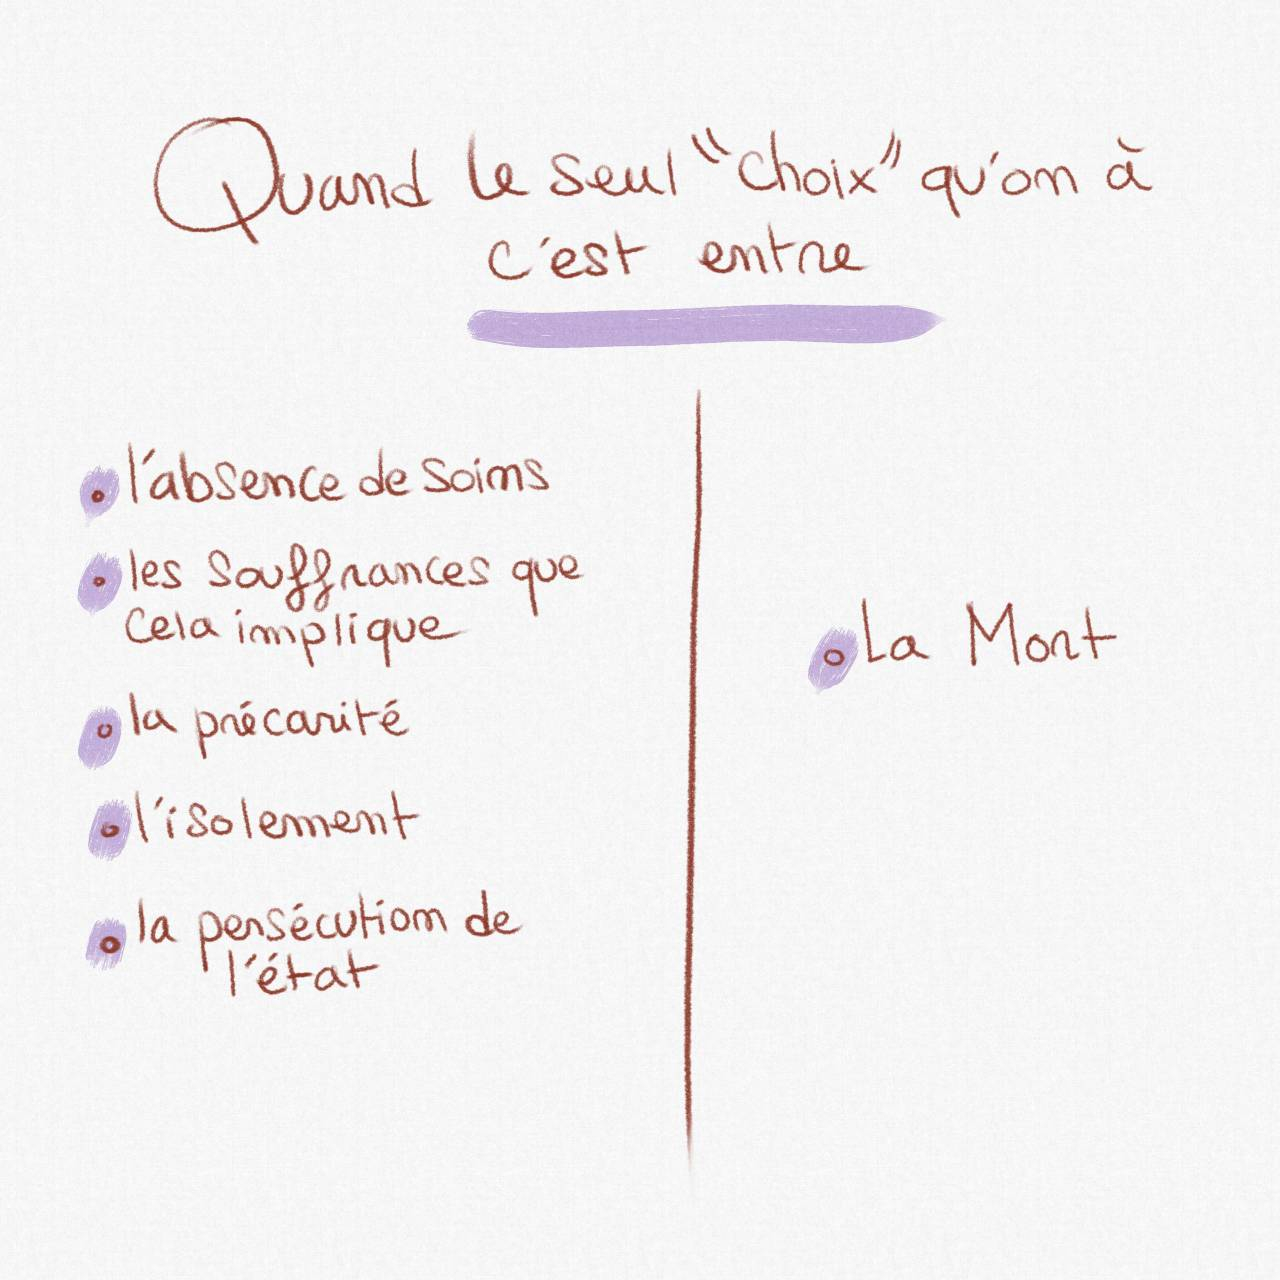 Quand le seul "choix" qu'on à
c'est entre
l'absence de soins
les souffrances que
cela implique
la précarité
l'isolement
la persécution de
l'état
La Mort